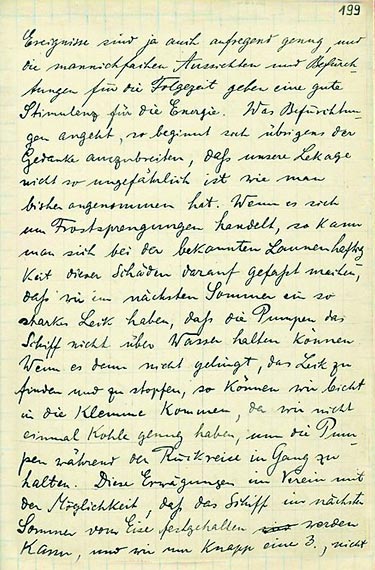 199
Ereignisse sind ja auch aufregend genug, und
die mannichfachen Aussichten und Befürch-
tungen für die Folgezeit geben eine gute
Stimulenz für die Energie. Was Befürchtun-
gen angeht, so beginnt sich übrigens der
Gedanke auszubreiten, daß unsere Lekage
nicht so ungefährlich ist wie man
bisher angenommen hat. Wenn es sich
um Frostsprengungen handelt, so kann
man sich bei der bekannten Launenhaftig-
keit dieser Schäden darauf gefaßt machen,
daß wir im nächsten Sommer ein so
starkes Leik haben, daß die Pumpen das
Schiff nicht über Wasser halten können.
Wenn es dann nicht gelingt, das Leik zu
finden und zu stopfen, so können wir leicht
in die Klemme kommen, da wir nicht
einmal Kohle genug haben, um die Pum-
pen während der Rückreise in Gang zu
halten. Diese Erwägungen im Verein mit
der Möglichkeit, daß das Schiff im nächsten
Sommer vom Eise festgehalten werden
kann, und wir nur knapp eine 3., nicht